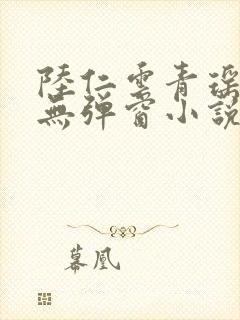 陸仁雲青瑶
無彈窗小說
幕凰